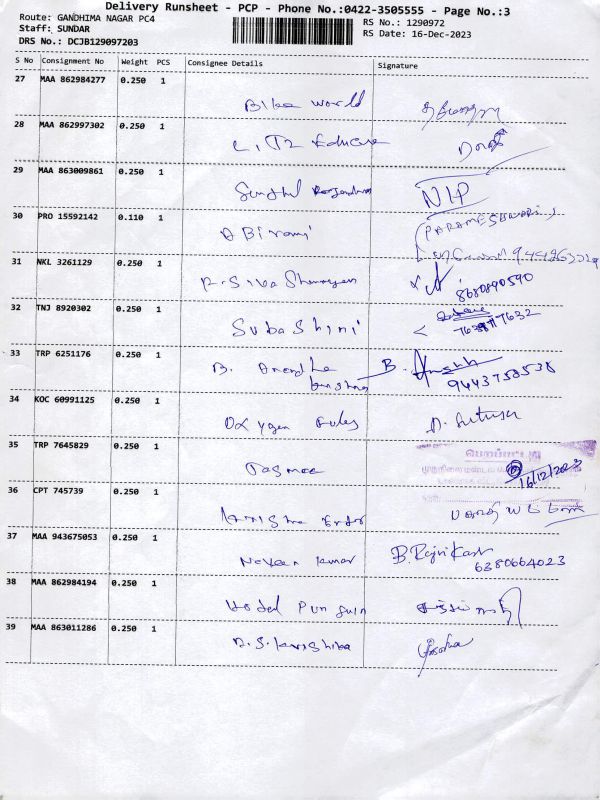 Delivery Runsheet - PCP - Phone No.:0422-3505555 - Page No.:3
Route: GANDHIMA NAGAR PC4
RS No.: 1290972
Staff: SUNDAR
RS Date: 16-Dec-2023
DRS No.: DCJB129097203
S No Consignment No Weight PCS Consignee Details Signature
27 MAA 862984277 0.250 1
Bike world
28 MAA 862997302 0.250 1
29 MAA 863009861 0.250 1
Senthil
NIP
30 PRO 15592142 0.110 1
Abirami
(PARAMESHWARI)
31 NKL 3261129 0.250 1
R. Siva Shanmugam
8680890590
32 TNJ 8920302 0.250 1
Suba Shini
33 TRP 6251176 0.250 1
B. Anandha
B.
9443758538
34 KOC 60991125 0.250 1
Oxygen
35 TRP 7645829 0.250 1
Tasmac
16/12/2023
36 CPT 745739 0.250 1
37 MAA 943675053 0.250 1
Naveen kumar B. Rajnikant
6380664023
38 MAA 862984194 0.250 1
Hotel Punguin
39 MAA 863011286 0.250 1
R.S. Kanishka